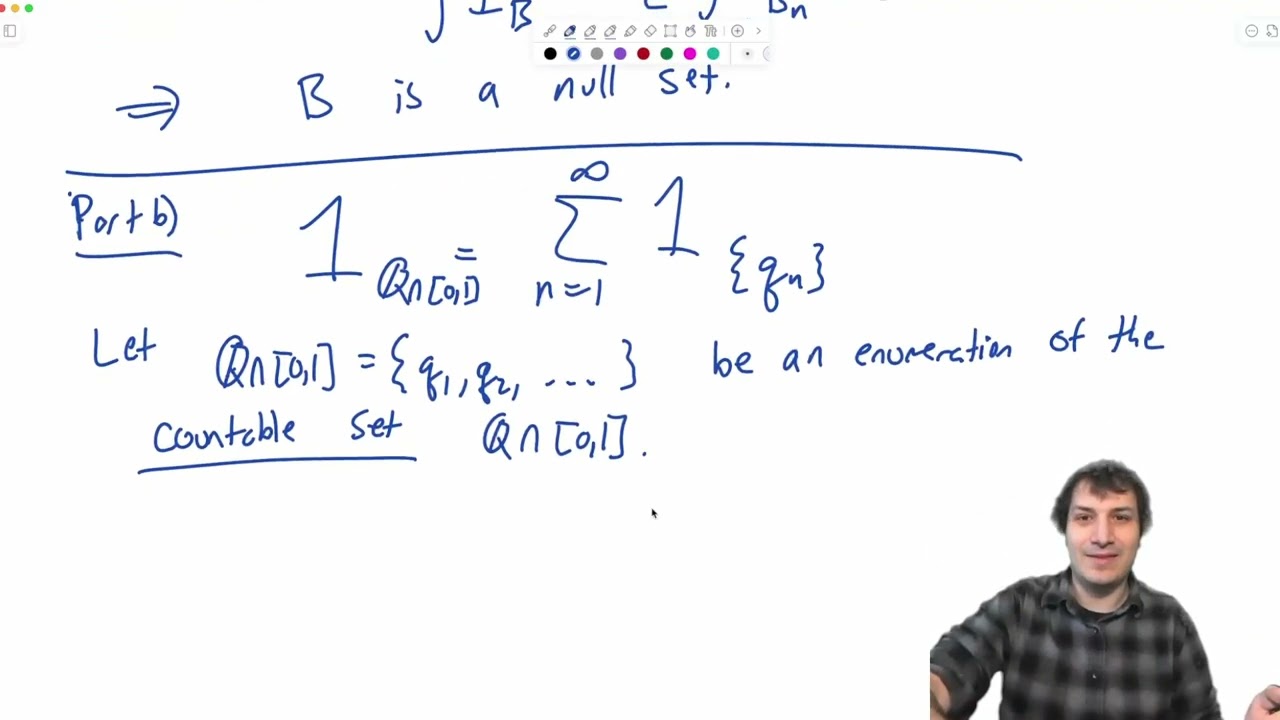 ∫ 1_B
B_n
⇒ B is a null set.
Part b) 1_{ℚ∩[0,1]} = ∑_{n=1}^{∞} 1_{{q_n}}
Let ℚ∩[0,1] = {q_1, q_2, ...} be an enumeration of the
countable set ℚ∩[0,1].